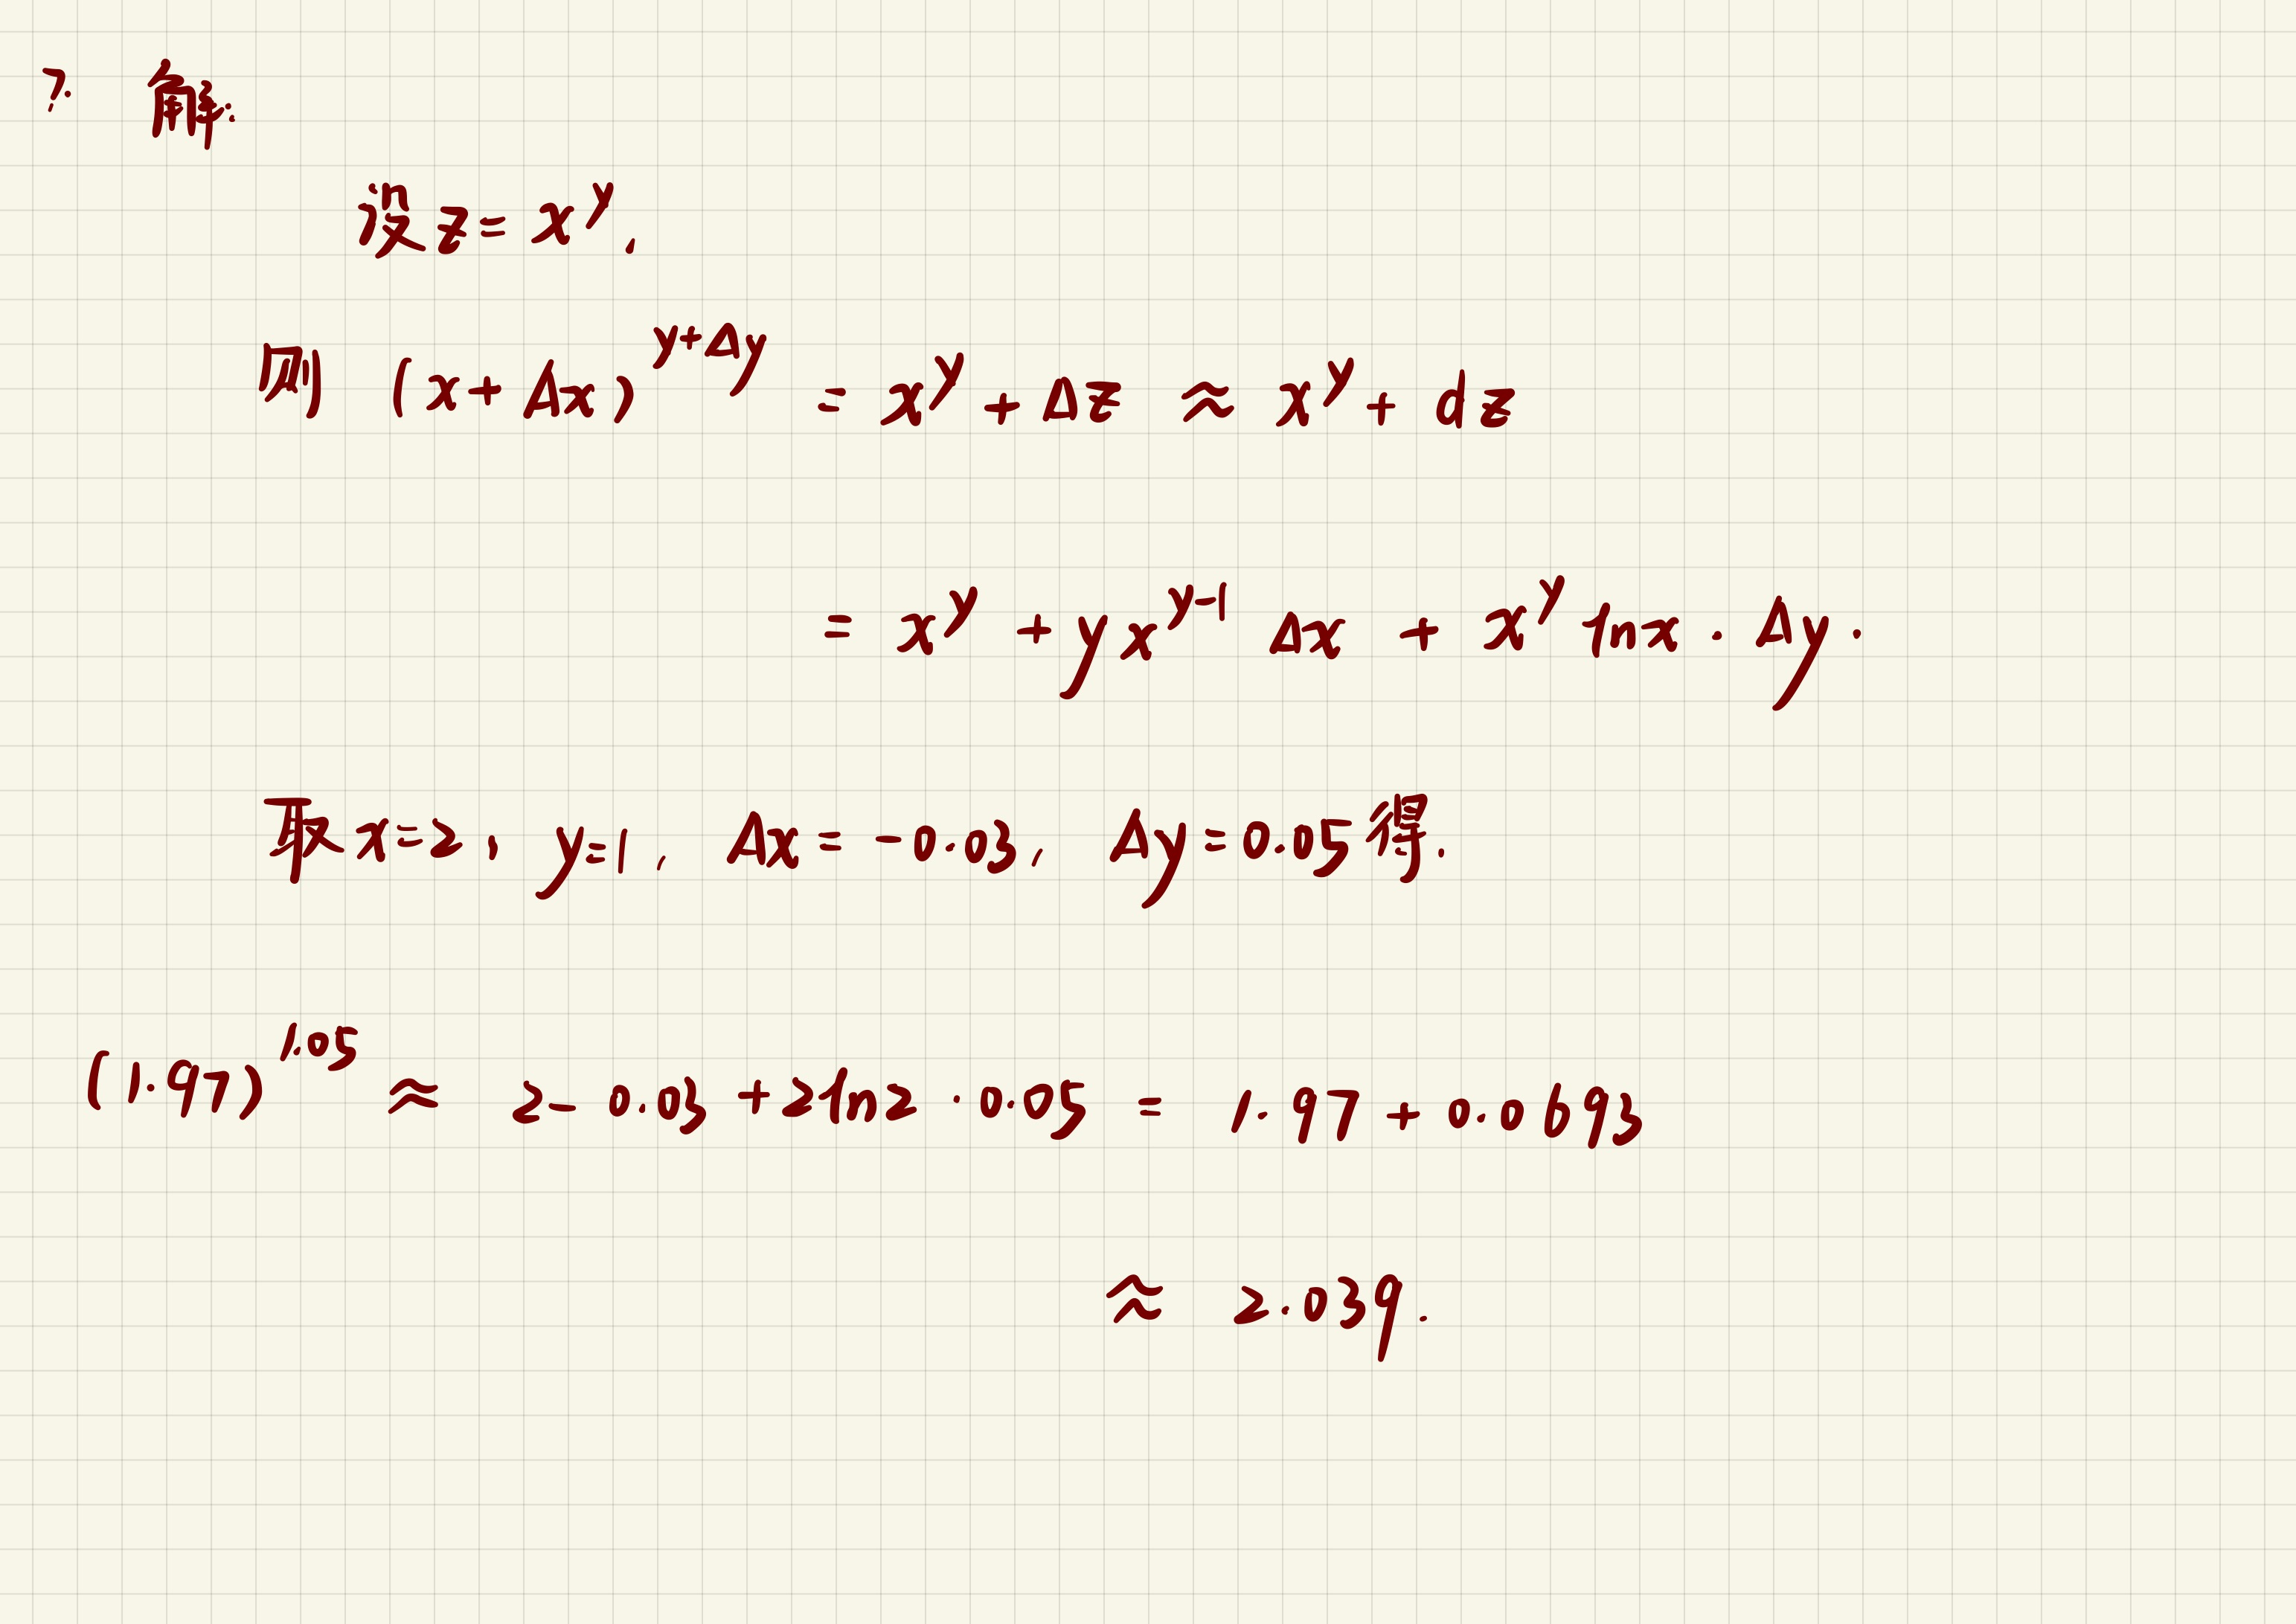 7. 解:
设 z = x^y,
则 (x+Δx)^{y+Δy} = x^y + Δz ≈ x^y + dz
= x^y + yx^{y-1} Δx + x^y lnx · Δy.
取 x=2, y=1, Δx = -0.03, Δy=0.05 得.
(1.97)^{1.05} ≈ 2 - 0.03 + 2ln2 · 0.05 = 1.97 + 0.0693
≈ 2.039.